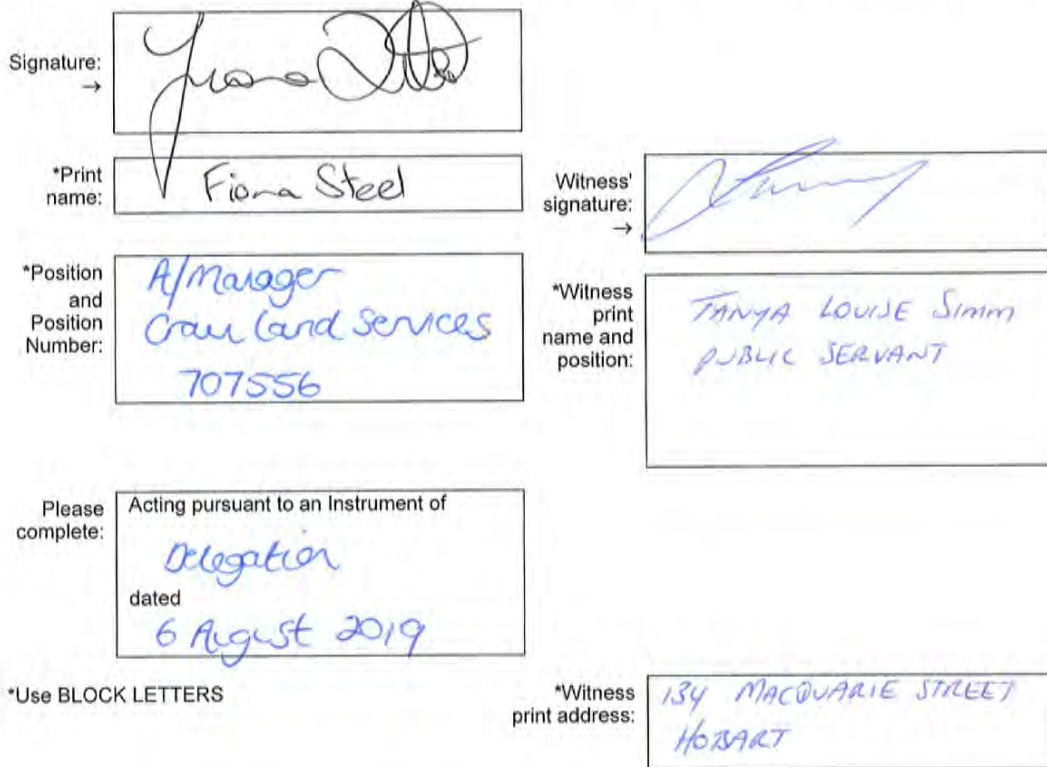 Signature:
→
*Print
name:
Fiona Steel
*Position
and
Position
Number:
A/Manager
Crown Land Services
707556
Please
complete:
Acting pursuant to an Instrument of
Delegation
dated
6 August 2019
*Use BLOCK LETTERS
Witness'
signature:
→
*Witness
print
name and
position:
TANYA LOUISE SIMM
PUBLIC SERVANT
*Witness
print address:
134 MACQUARIE STREET
HOBART